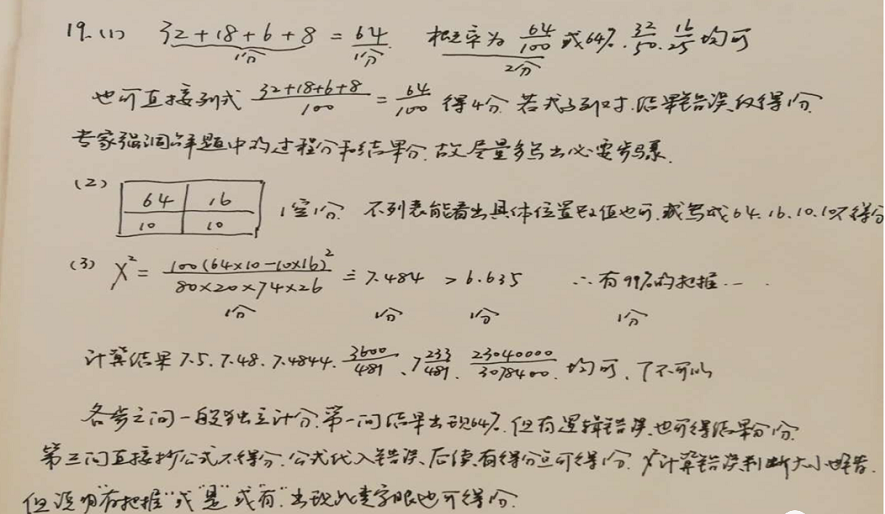 19. (1) 32+18+6+8 = 64. 概率为 64/100 或64%. 32/50. 16/25 均可
1分 1分 2分
也可直接列式 32+18+6+8/100 = 64/100 得4分. 若式子列对, 结果错误仅得1分.
专家强调解题中的过程分和结果分, 故尽量多写出必要步骤.
(2) 64 16 1空1分. 不列表能看出具体位置取值也可, 或写成64. 16. 10. 10不得分
10 10
(3) X² = 100(64×10-10×16)²/80×20×74×26 ≐ 7.484 > 6.635 ∴有99%的把握……
1分 1分 1分 1分
计算结果 7.5. 7.48. 7.4844. 3600/481、7 233/481. 23040000/3078400. 均可, 7不可以
各步之间一般独立计分. 第一问结果出现64%. 但有逻辑错误, 也可得结果分1分.
第三问直接抄公式不得分. 公式代入错误, 后续有得分点可得1分. 计算错误判断大小也错.
但说明"有把握"或"是"或"有"出现此类字眼也可得分.